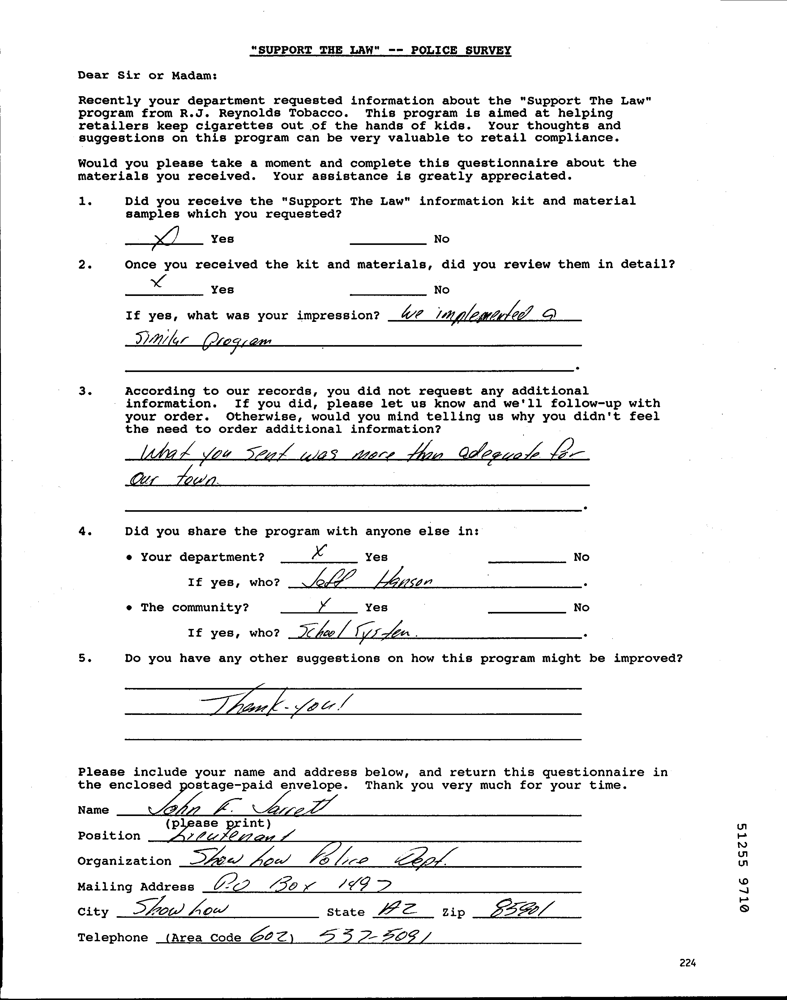 "SUPPORT THE LAW" -- POLICE SURVEY
Dear Sir or Madam:
Recently your department requested information about the "Support The Law"
program from R.J. Reynolds Tobacco. This program is aimed at helping
retailers keep cigarettes out of the hands of kids. Your thoughts and
suggestions on this program can be very valuable to retail compliance.
Would you please take a moment and complete this questionnaire about the
materials you received. Your assistance is greatly appreciated.
1. Did you receive the "Support The Law" information kit and material
samples which you requested?
X Yes No
2. Once you received the kit and materials, did you review them in detail?
X Yes No
If yes, what was your impression? We implemented a
Similar Program
.
3. According to our records, you did not request any additional
information. If you did, please let us know and we'll follow-up with
your order. Otherwise, would you mind telling us why you didn't feel
the need to order additional information?
What you sent was more than adequate for
our town.
.
4. Did you share the program with anyone else in:
• Your department? X Yes No
If yes, who? Jeff Hanson .
• The community? X Yes No
If yes, who? School System. .
5. Do you have any other suggestions on how this program might be improved?
Thank-you!
Please include your name and address below, and return this questionnaire in
the enclosed postage-paid envelope. Thank you very much for your time.
Name John F. Jarrett
(please print)
Position Lieutenant
Organization Show how Police Dept.
Mailing Address P.O Box 1497
City Show how State AZ Zip 85901
Telephone (Area Code 602) 537-5091
51255 9710
224